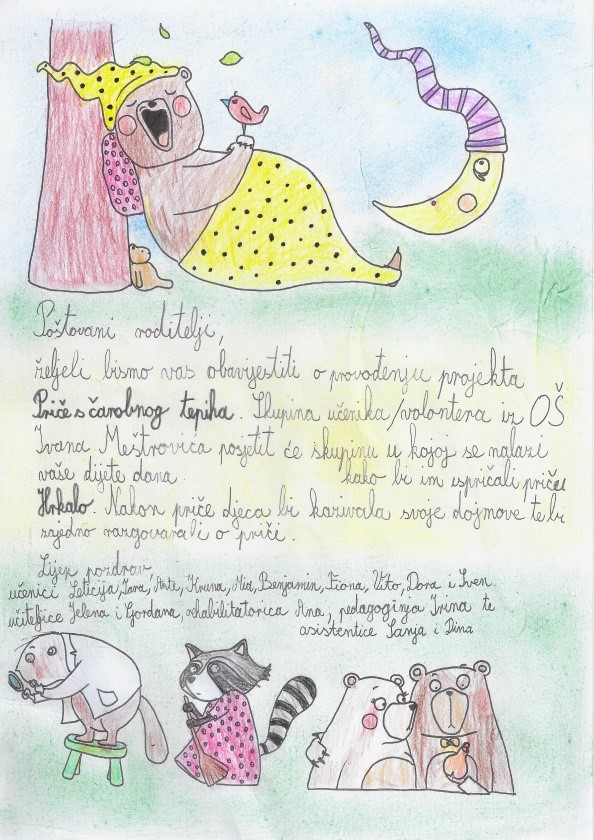 Poštovani roditelji,
željeli bismo vas obavijestiti o provođenju projekta
Priče s čarobnog tepiha. Skupina učenika/volontera iz OŠ
Ivana Meštrovića posjetit će skupinu u kojoj se nalazi
vaše dijete dana kako bi im ispričali priču
Hrkalo. Nakon priče djeca bi kazivala svoje dojmove te bi
zajedno razgovarali o priči.
Lijep pozdrav
učenici Leticija, Jara, Ante, Kruna, Mia, Benjamin, Fiona, Vito, Dora i Sven
učiteljice Jelena i Gordana, rehabilitatorica Ana, pedagoginja Irina te
asistentice Sanja i Dina